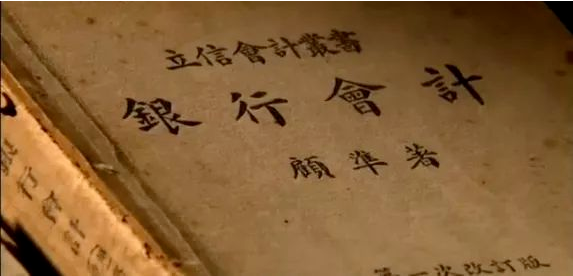 立信會計叢書
銀行會計
顧準著
次改訂版
銀行會計